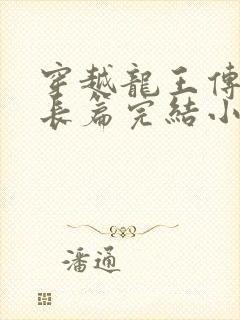 穿越龍王傳
長篇完結小
潘通